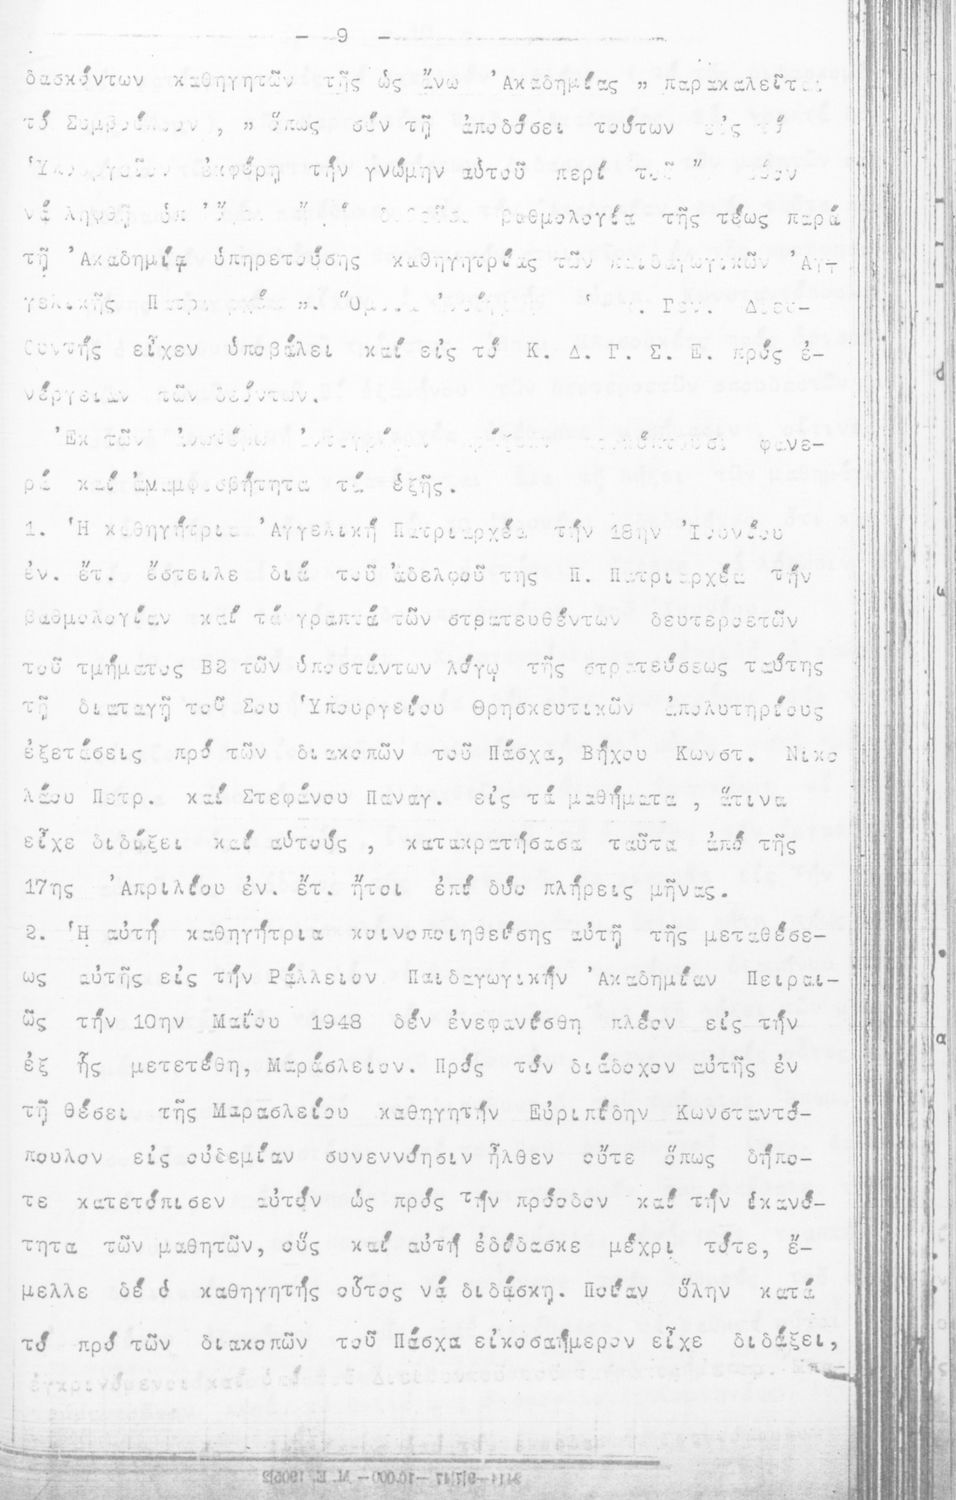 - 9 -
δασκόντων καθηγητῶν τῆς ὡς ἄνω Ἀκαδημίας " παρακαλεῖται
τό Συμβούλιον, " ὅπως σύν τῇ ἀποδόσει τούτων εἰς τό
Ὑπουργεῖον ἐκφέρῃ τήν γνώμην αὐτοῦ περί τοῦ
νά ληφθῇ ὑπ' ὄψιν ἤ μή βαθμολογία τῆς τέως παρά
τῇ Ἀκαδημίᾳ ὑπηρετούσης καθηγητρίας τῶν παιδαγωγικῶν Ἀγ-
γελικῆς Πατριαρχέα ". Διευ-
θυντής εἶχεν ὑποβάλει καί εἰς τό Κ. Δ. Γ. Σ. Ε. πρός ἐ-
νέργειαν τῶν δεόντων.
Ἐκ τῶν φανε-
ρά καί ἀναμφισβήτητα τά ἑξῆς.
1. Ἡ καθηγήτρια Ἀγγελική Πατριαρχέα τήν 18ην Ἰουνίου
ἐν. ἔτ. ἔστειλε διά τοῦ ἀδελφοῦ της Π. Πατριαρχέα τήν
βαθμολογίαν καί τά γραπτά τῶν στρατευθέντων δευτεροετῶν
τοῦ τμήματος Β2 τῶν ὑποστάντων λόγῳ τῆς στρατεύσεως ταύτης
τῇ διαταγῇ τοῦ Σου Ὑπουργείου Θρησκευτικῶν ἀπολυτηρίους
ἐξετάσεις πρό τῶν διακοπῶν τοῦ Πάσχα, Βήχου Κωνστ. Νικο
λάου Πετρ. καί Στεφάνου Παναγ. εἰς τά μαθήματα , ἅτινα
εἶχε διδάξει καί αὐτούς , κατακρατήσασα ταῦτα ἀπό τῆς
17ης Ἀπριλίου ἐν. ἔτ. ἤτοι ἐπί δύο πλήρεις μῆνας.
2. Ἡ αὐτή καθηγήτρια κοινοποιηθείσης αὐτῇ τῆς μεταθέσε-
ως αὐτῆς εἰς τήν Ράλλειον Παιδαγωγικήν Ἀκαδημίαν Πειραι-
ῶς τήν 10ην Μαΐου 1948 δέν ἐνεφανίσθη πλέον εἰς τήν
ἐξ ἧς μετετέθη, Μαράσλειον. Πρός τόν διάδοχον αὐτῆς ἐν
τῇ θέσει τῆς Μαρασλείου καθηγητήν Εὐριπίδην Κωνσταντό-
πουλον εἰς οὐδεμίαν συνεννόησιν ἦλθεν οὔτε ὅπως δήπο-
τε κατετόπισεν αὐτόν ὡς πρός τήν πρόοδον καί τήν ἱκανό-
τητα τῶν μαθητῶν, οὕς καί αὐτή ἐδίδασκε μέχρι τότε, ἔ-
μελλε δέ ὁ καθηγητής οὗτος νά διδάσκῃ. Ποίαν ὕλην κατά
τό πρό τῶν διακοπῶν τοῦ Πάσχα εἰκοσαήμερον εἶχε διδάξει,